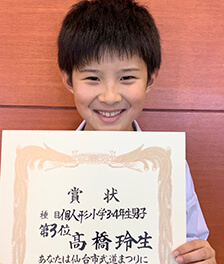 賞状
種目 個人形小学3・4年生男子
第3位
高橋玲生
あなたは仙台市武道まつりに